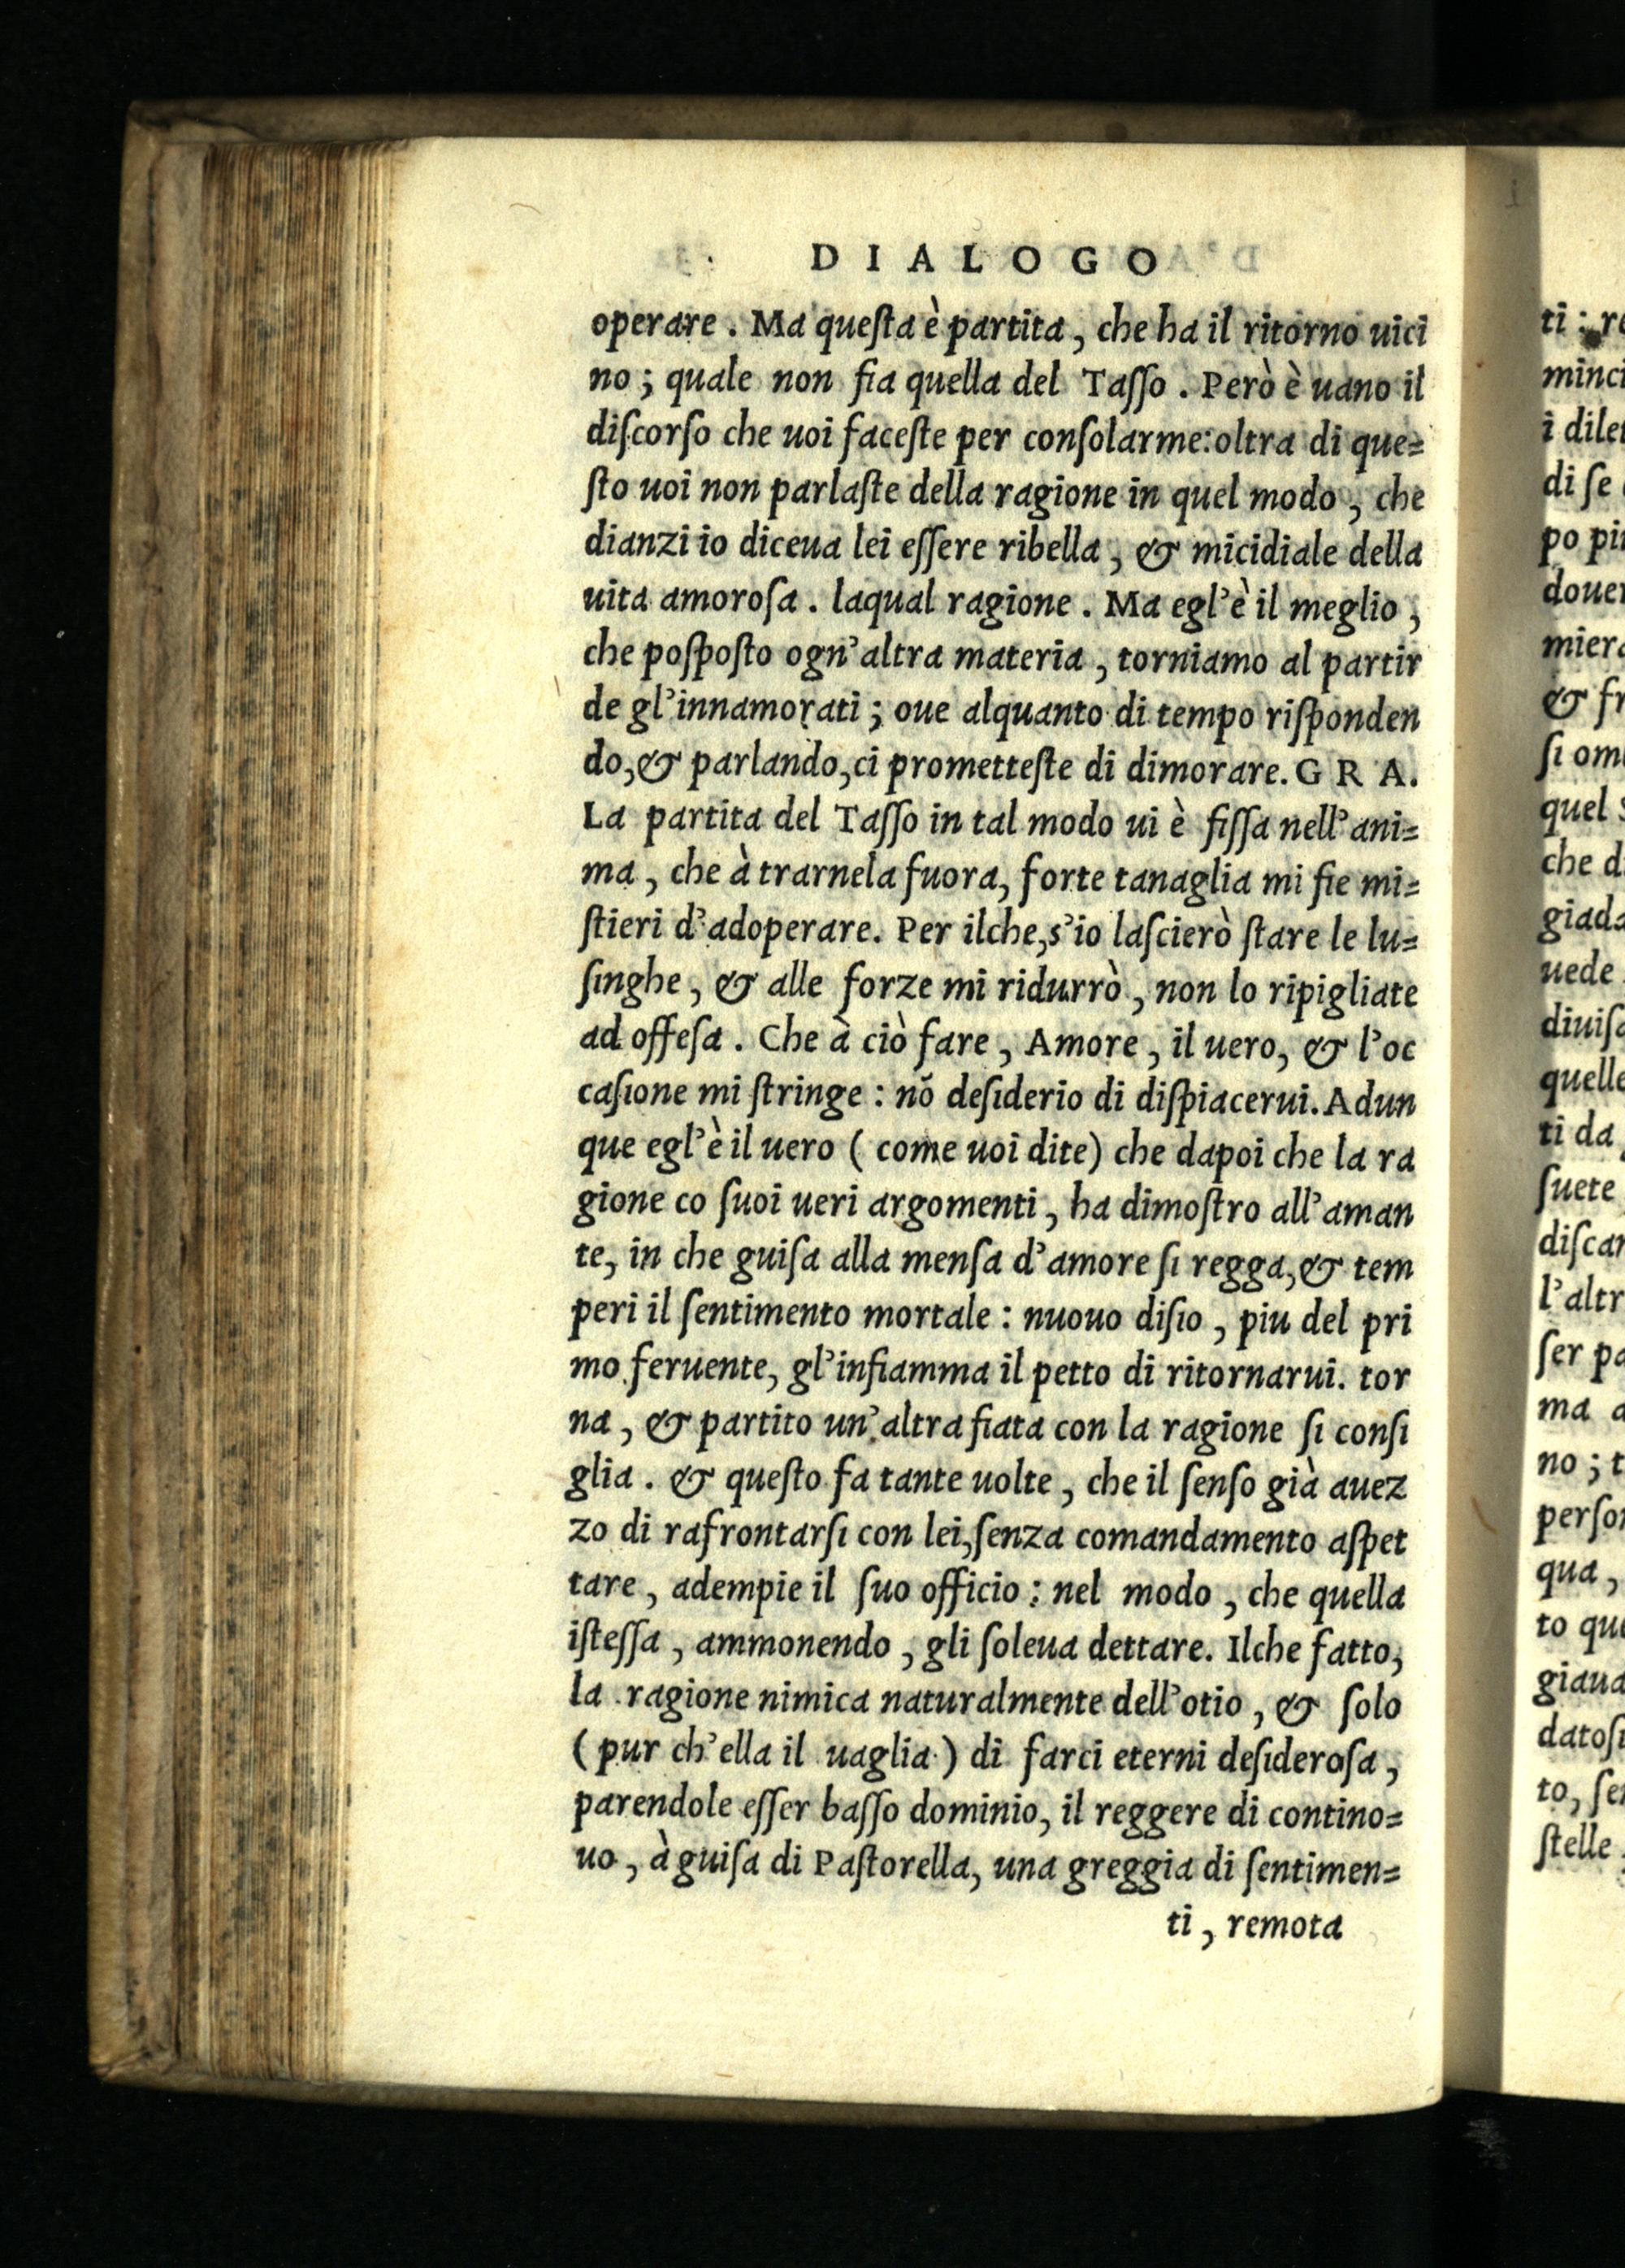 DIALOGO
operare. Ma queſta è partita, che ha il ritorno uici
no; quale non fia quella del Taſſo. Però è uano il
diſcorſo che uoi faceſte per conſolarme: oltra di que=
ſto uoi non parlaſte della ragione in quel modo, che
dianzi io diceua lei eſſere ribella, & micidiale della
uita amoroſa. laqual ragione. Ma egl'è il meglio,
che poſpoſto ogn'altra materia, torniamo al partir
de gl'innamorati; oue alquanto di tempo riſponden
do, & parlando, ci prometteſte di dimorare. GRA.
La partita del Taſſo in tal modo ui è fiſſa nell'ani=
ma, che à trarnela fuora, forte tanaglia mi fie mi=
ſtieri d'adoperare. Per ilche, s'io laſcierò ſtare le lu=
ſinghe, & alle forze mi ridurrò, non lo ripigliate
ad offeſa. Che à ciò fare, Amore, il uero, & l'oc
caſione mi ſtringe: nō deſiderio di diſpiacerui. Adun
que egl'è il uero (come uoi dite) che dapoi che la ra
gione co ſuoi ueri argomenti, ha dimoſtro all'aman
te, in che guiſa alla menſa d'amore ſi regga, & tem
peri il ſentimento mortale: nuouo diſio, piu del pri
mo feruente, gl'infiamma il petto di ritornarui. tor
na, & partito un'altra fiata con la ragione ſi conſi
glia. & queſto fa tante uolte, che il ſenſo già auez
zo di rafrontarſi con lei, ſenza comandamento aſpet
tare, adempie il ſuo officio: nel modo, che quella
iſteſſa, ammonendo, gli ſoleua dettare. Ilche fatto,
la ragione nimica naturalmente dell'otio, & ſolo
(pur ch'ella il uaglia) di farci eterni deſideroſa,
parendole eſſer baſſo dominio, il reggere di contino=
uo, à guiſa di Paſtorella, una greggia di ſentimen=
ti, remota
ti: re
minci
i dilet
di ſe
po piu
douer
miera
& fr
ſi om
quel
che d
giada
uede
diuiſa
quelle
ti da
ſuete
diſcar
l'altr
ſer pa
ma a
no; t
perſon
qua,
to que
giaua
datoſi
to, ſen
ſtelle